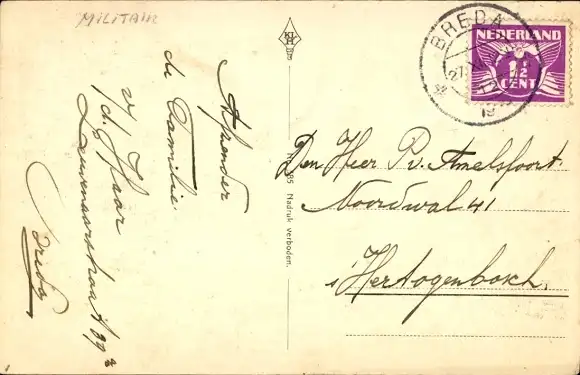 MILITAIR
Afzender
de Familie
v/d Haar
Leuvenaarstraat 99ª
Breda
No. 385 Nadruk verboden.
BREDA
12
19
NEDERLAND
1½
CENT
Den Heer Pv. Amelsfoort.
Noordwal 41
's Hertogenbosch.